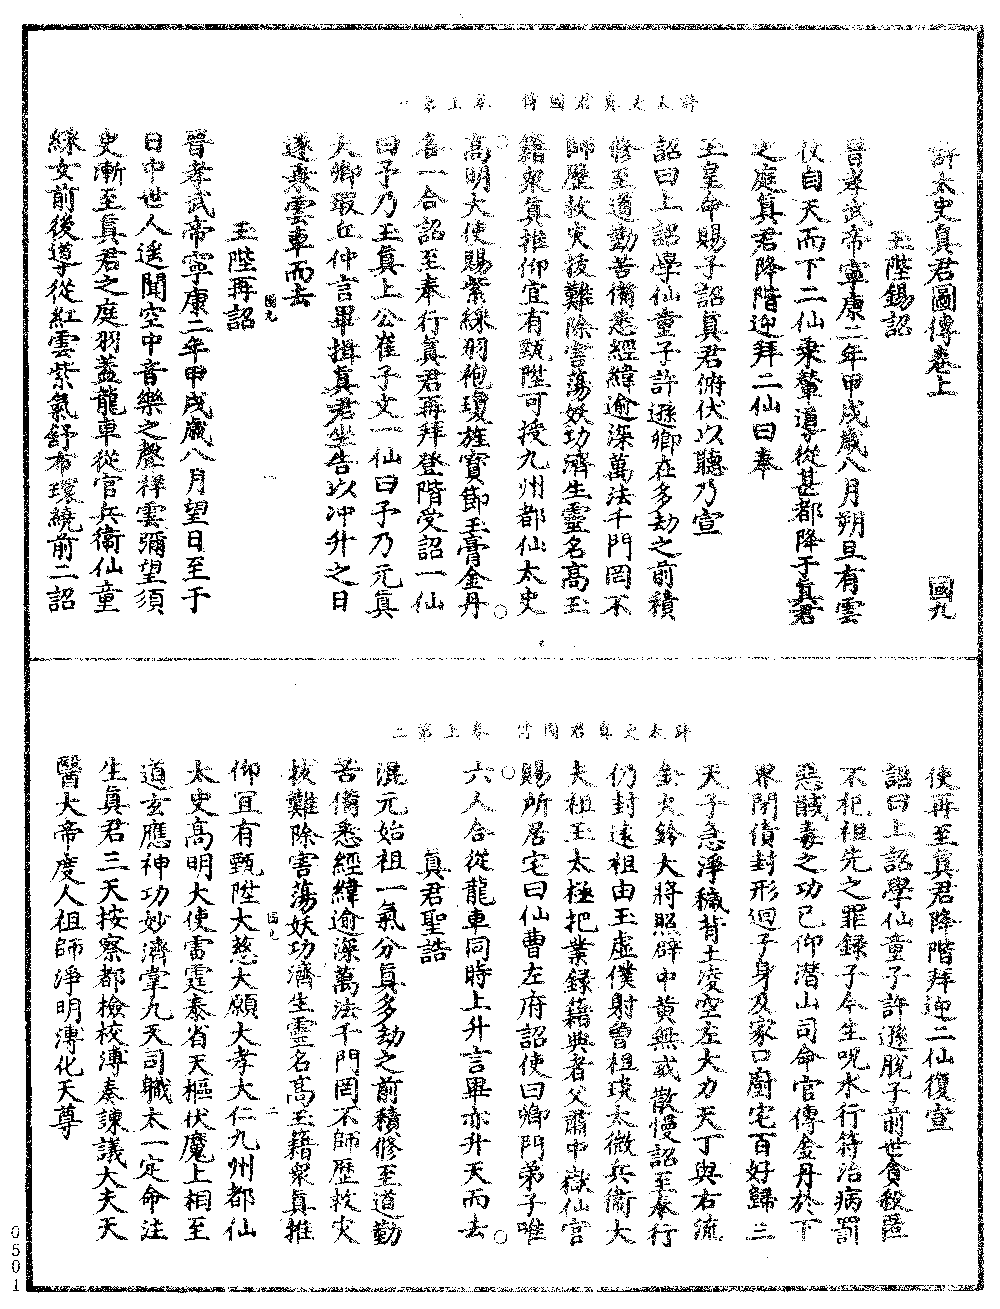 許太史真君圖傳卷上　國九
玉陛錫詔
晉孝武帝寧康二年甲戌歲八月朔旦有雲
仗自天而下二仙乘輦導從甚都降于真君
之庭真君降階迎拜二仙曰奉
玉皇命賜子詔真君俯伏以聽乃宣
詔曰上詔學仙童子許遜卿在多劫之前積
修至道勤苦備悉經緯逾深萬法千門罔不
師歷救灾拔難除害蕩妖功濟生靈名高玉
籍衆真推仰宜有甄陞可授九州都仙太史
高明大使賜紫綵羽袍瓊旌寶節玉膏金丹
各一合詔至奉行真君再拜登階受詔一仙
曰予乃玉真上公崔子文一仙曰予乃元真
大卿瑕丘仲言畢揖真君坐告以冲升之日
遂乘雲車而去
玉陛再詔
晉孝武帝寧康二年甲戌歲八月望日至于
日中世人遙聞空中音樂之聲祥雲彌望須
史漸至真君之庭羽蓋龍車從官兵衛仙童
綵女前後導從紅雲紫氣舒布環繞前二詔
使再至真君降階拜迎二仙復宣
詔曰上詔學仙童子許遜脫子前世貪殺匿
不祀祖先之罪録子今生呪水行符治病罰
惡馘毒之功已仰潛山司命官傳金丹於下
界閉債封形迴子身及家口廚宅百好歸三
天子急淨穢背土凌空左大力天丁與右流
金火鈴大將照辟中黃無或散慢詔至奉行
仍封遠祖由玉虛僕射曾祖琰太微兵衞大
夫祖玉太極把業録籍典者父肅中嶽仙官
賜所居宅曰仙曹左府詔使曰卿門弟子唯
六人合從龍車同時上升言畢亦升天而去
真君聖誥
混元始祖一氣分真多劫之前積修至道勤
苦備悉經緯逾深萬法千門罔不師歷救灾
拔難除害蕩妖功濟生靈名高玉籍衆真推
仰宜有甄陞大慈大願大孝大仁九州都仙
太史高明大使雷霆泰省天樞伏魔上相至
道玄應神功妙濟掌九天司職太一定命注
生真君三天按察都檢校溥奏諫議大夫天
醫大帝度人祖師淨明溥化天尊
許太史真君圖傳　卷上第一
國九　一
許太史真君圖傳　卷上第二
國九　二
0501